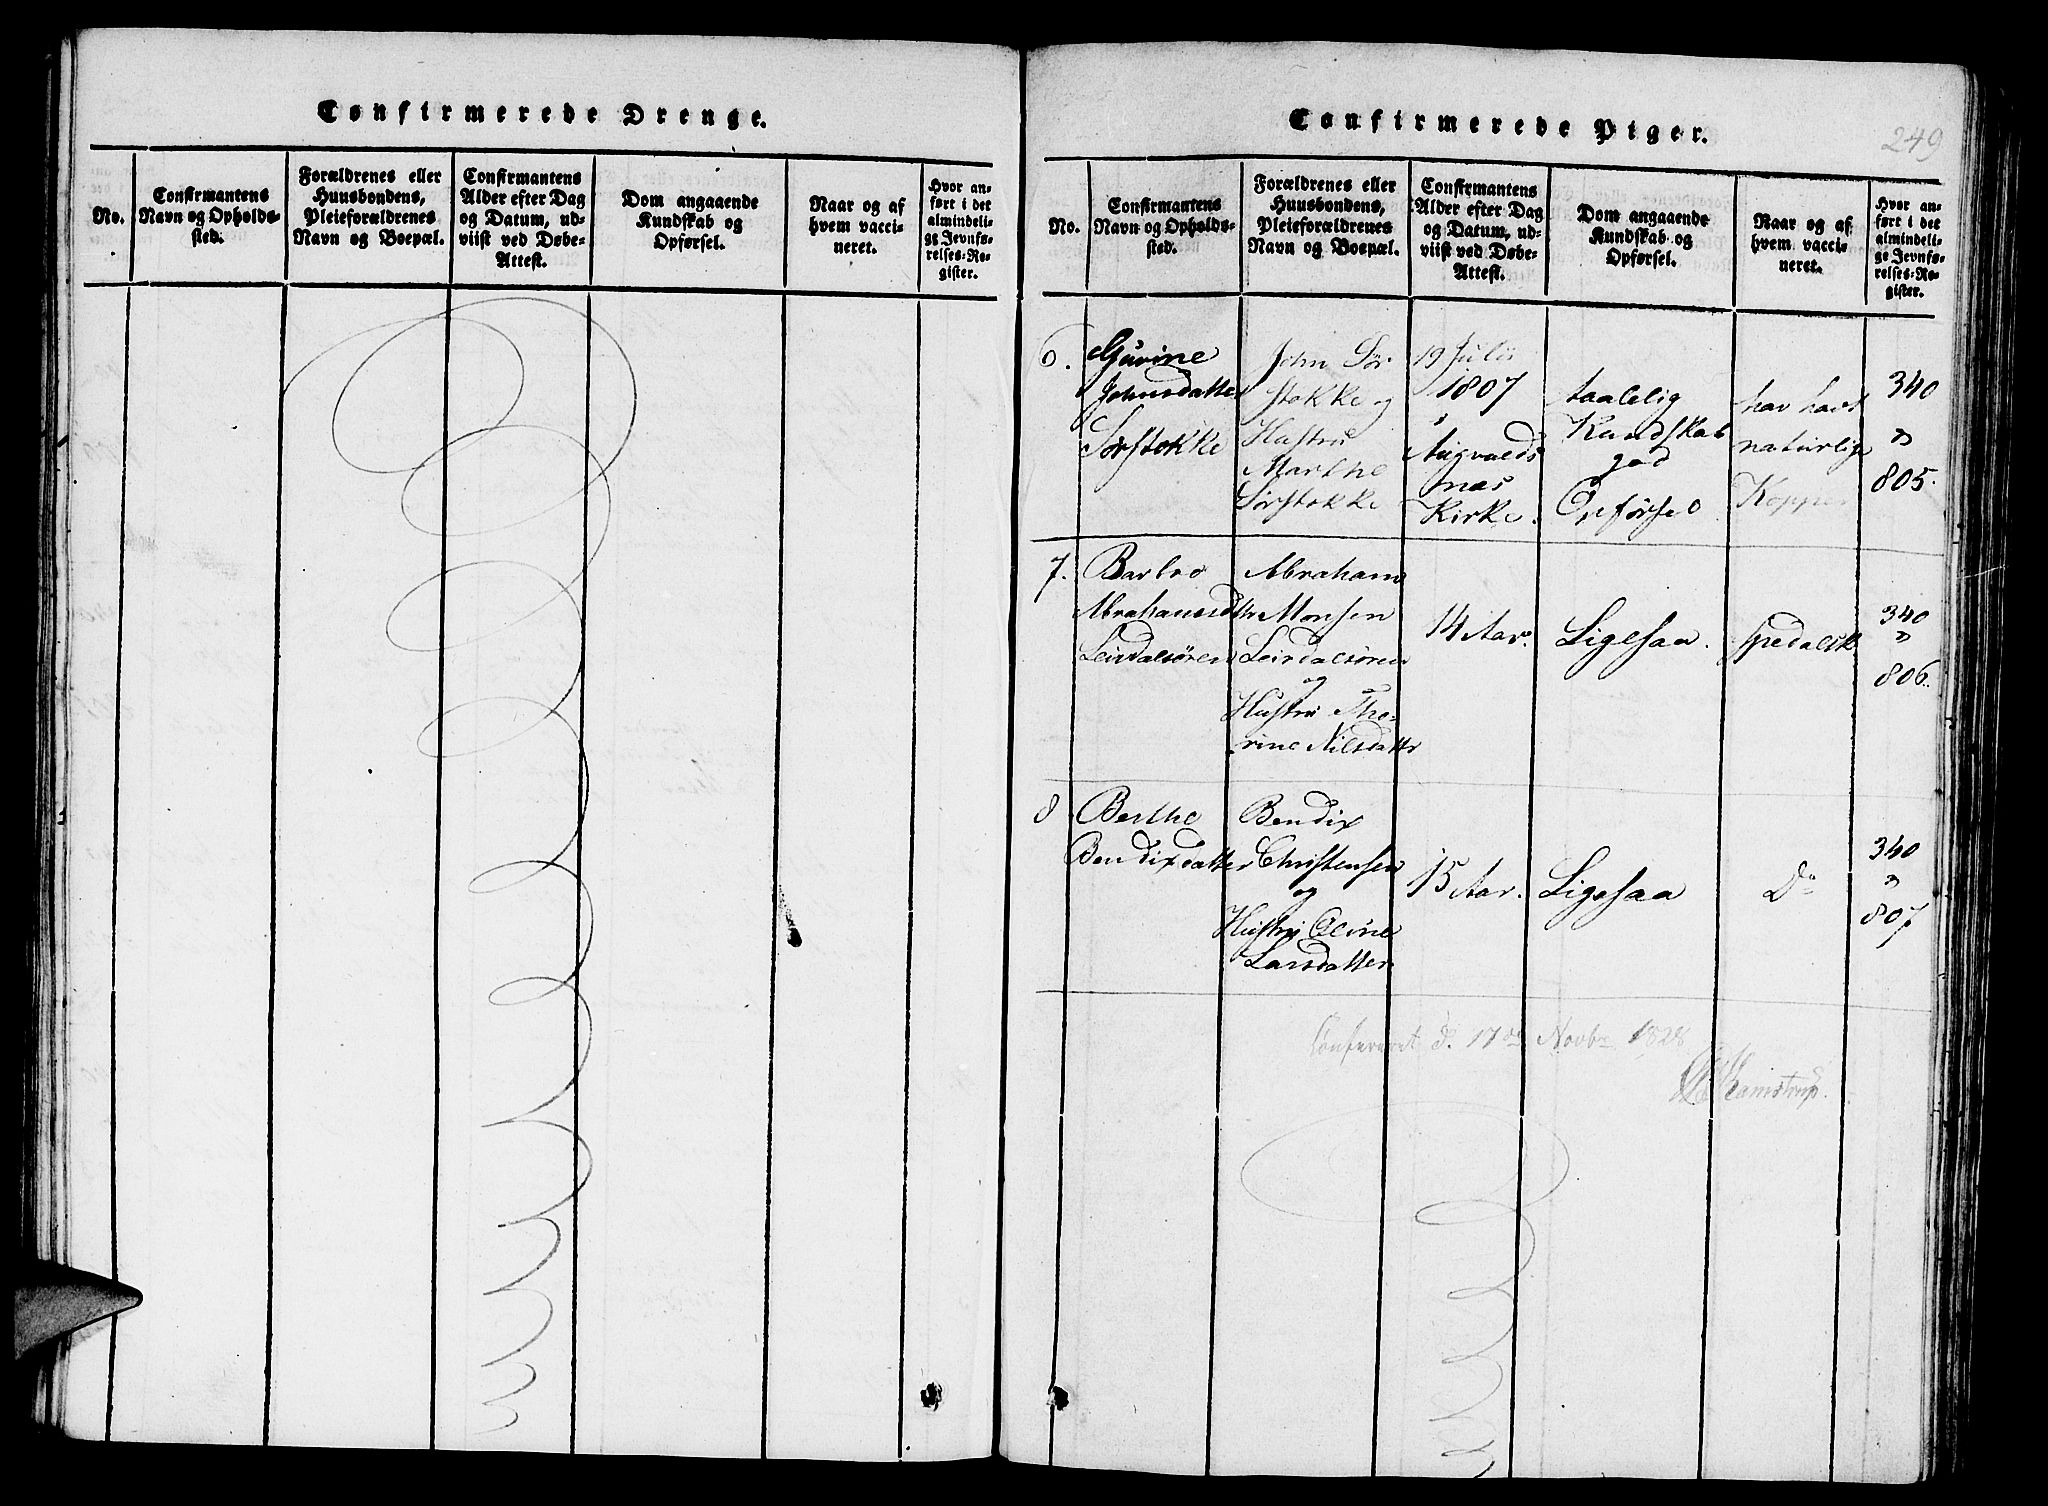 Confirmerede Drenge.
No.
Confirmantens
Navn og Opholds-
sted.
Forældrenes eller
Huusbondens,
Pleieforældrenes
Navn og Boepæl.
Confirmantens
Alder efter Dag
og Datum, ud-
viist ved Døbe-
Attest.
Dom angaaende
Kundskab og
Opførsel.
Naar og af
hvem vacci-
neret.
Hvor an-
ført i det
almindeli-
ge Jevnfø-
relses-Re-
gister.
Confirmerede Piger.
249
No.
Confirmantens
Navn og Opholds-
sted.
Forældrenes eller
Huusbondens,
Pleieforældrenes
Navn og Boepæl.
Confirmantens
Alder efter Dag
og Datum, ud-
viist ved Døbe-
Attest.
Dom angaaende
Kundskab og
Opførsel.
Naar og af
hvem vacci-
neret.
Hvor an-
ført i det
almindeli-
ge Jevnfø-
relses-Re-
gister.
6.
Gurine
Johnsdatter
Sørstokke
John Sør
stokke og
Hustru
Marthe
Sørstokke
19 Julii
1807
i
Augvalds
næs
Kirke.
taalelig
Kundskab
god
Opførsel
har havt
naturlige
Kopper
340
"
805.
7.
Barbro
Abrahamsdtr
Leirdalsören
Abraham
Monsen
Leirdalsören
og
Hustru Tho-
rine Nilsdattr
14 Aar.
Ligesaa.
spedalsk
340
"
806.
8
Berthe
Bendixdatter
Bendix
Christensen
og
Hustru Oline
Larsdatter
15 Aar.
Ligesaa
Do
340
"
807
d. 17de Novbr 1828
Kamstrup.